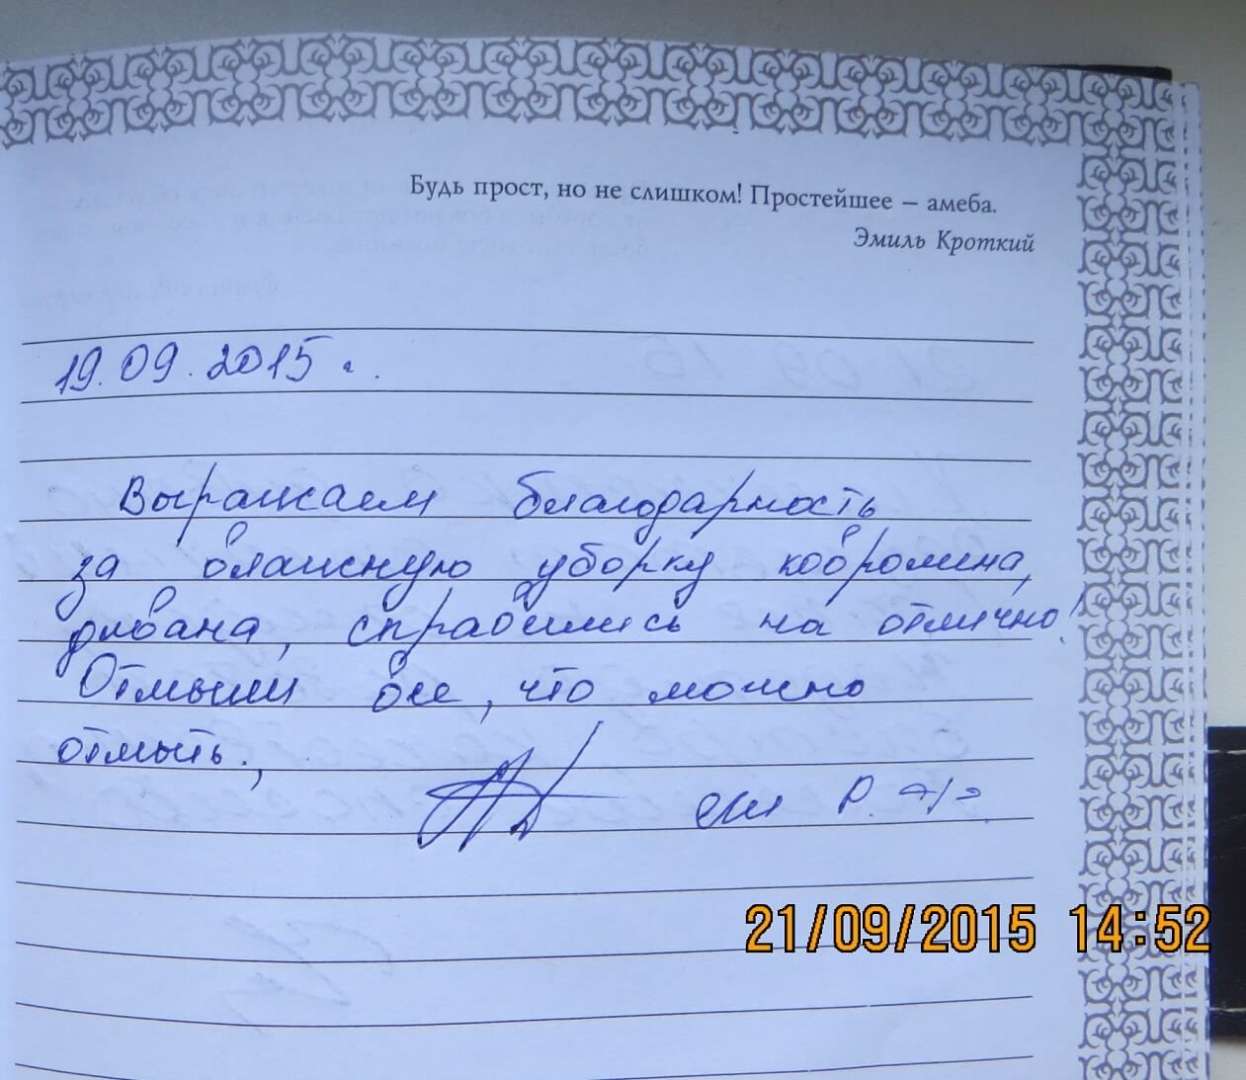 Будь прост, но не слишком! Простейшее – амеба.
Эмиль Кроткий
19.09.2015 г.
Выражаем благодарность
за влажную уборку ковролина,
дивана, справились на отлично!
Отмыли все, что можно
отмыть.
21/09/2015 14:52